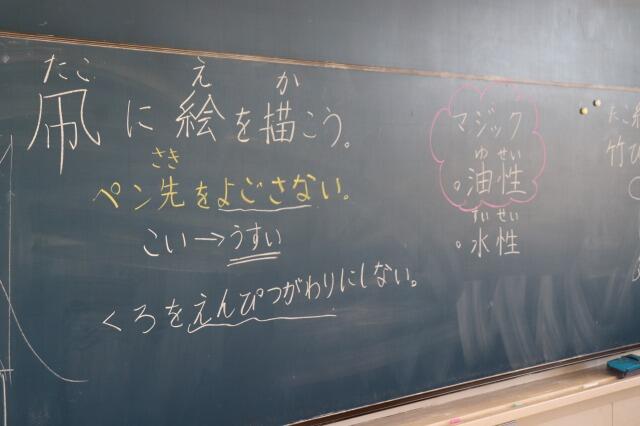 たこ え か
凧に絵を描こう。
さき
ペン先をよごさない。
こい→うすい
くろをえんぴつがわりにしない。
マジック
ゆせい
・油性
すいせい
・水性
たこ
竹ひ